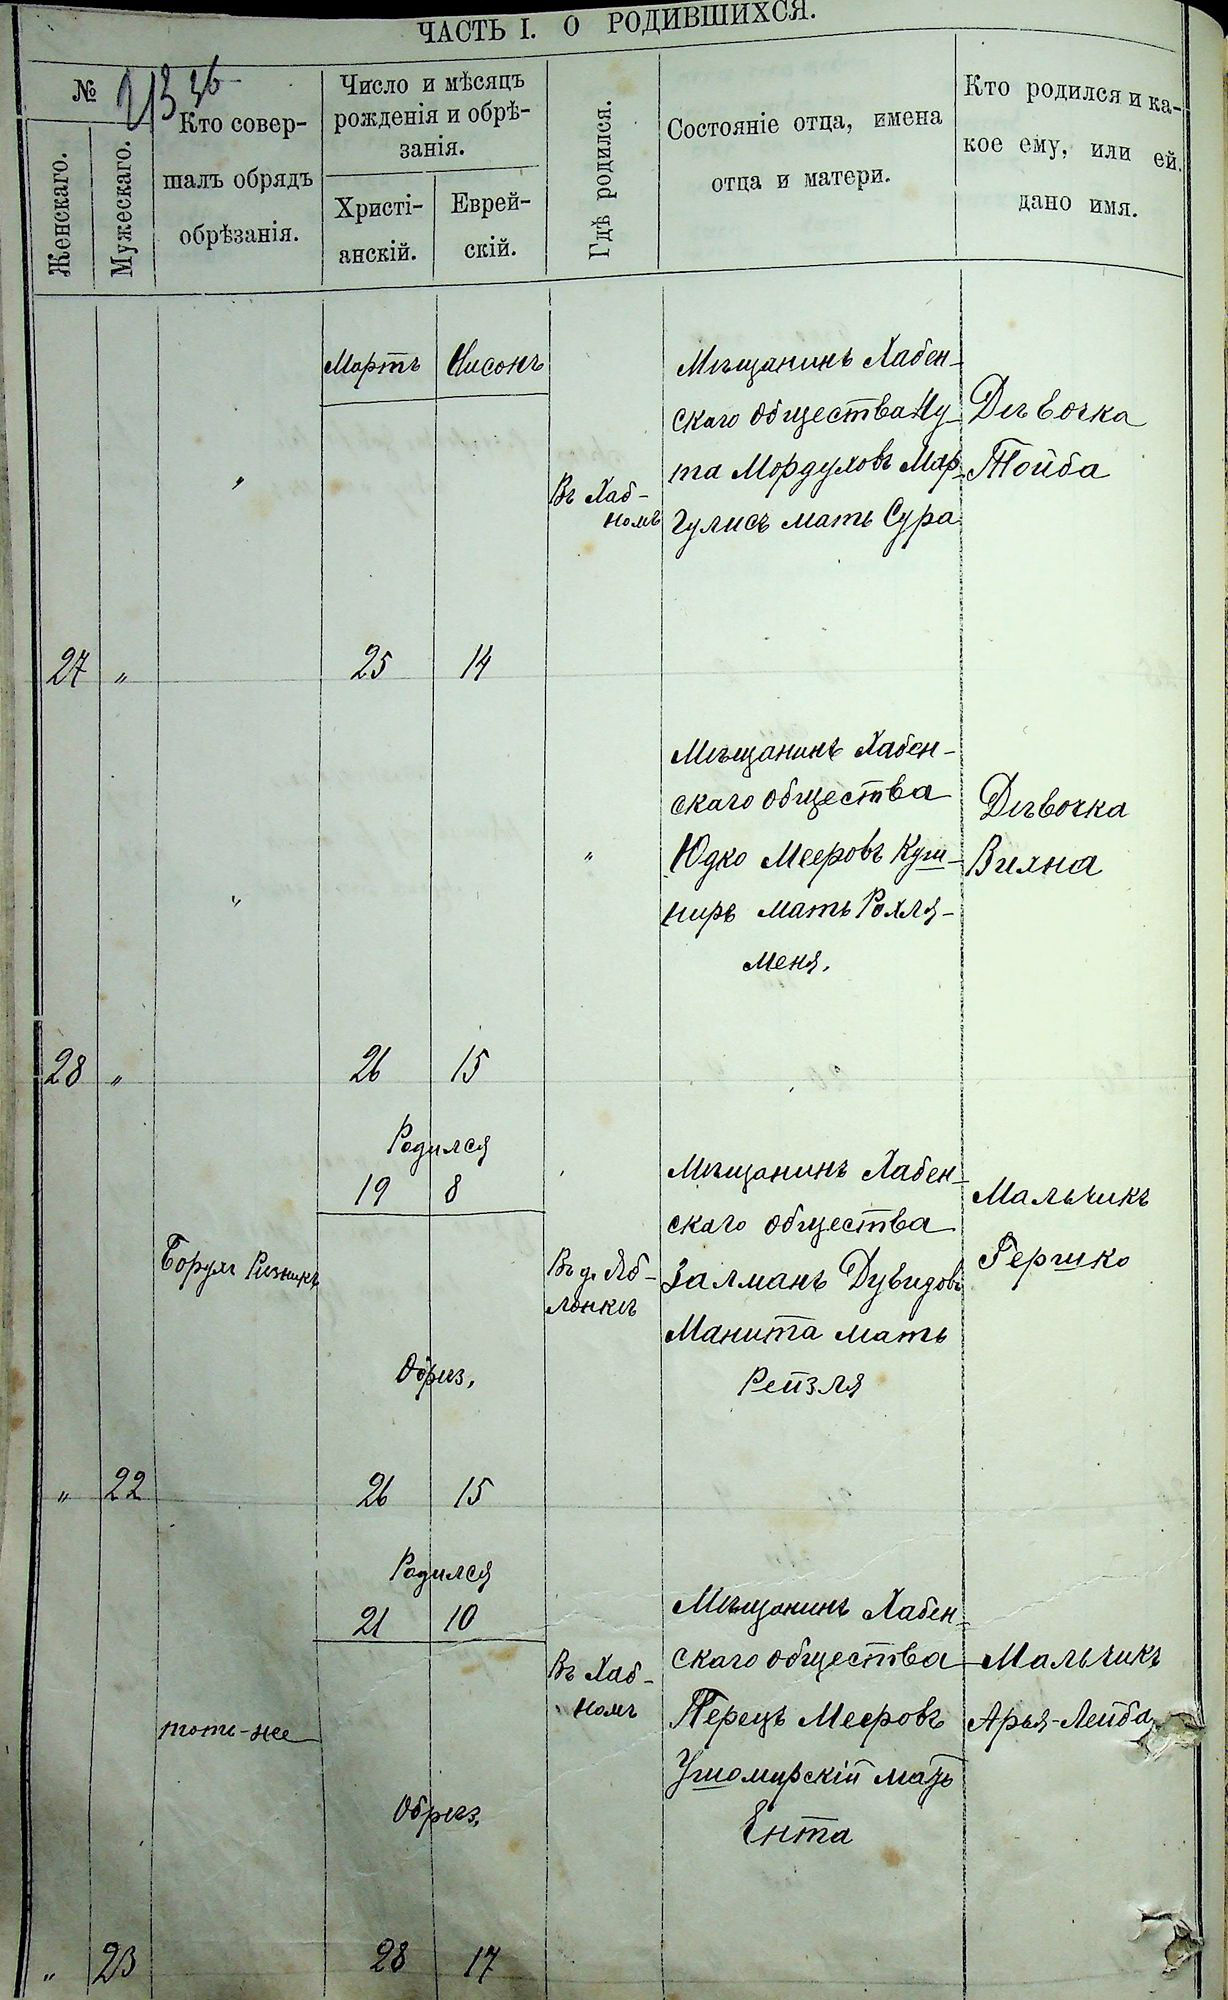 ЧАСТЬ I. О РОДИВШИХСЯ.
№
Женскаго.
Мужескаго.
Кто совер-
шалъ обрядъ
обрѣзанія.
Число и мѣсяцъ
рожденія и обрѣ-
занія.
Христі-
анскій.
Еврей-
скій.
Гдѣ родился.
Состояніе отца, имена
отца и матери.
Кто родился и ка-
кое ему, или ей.
дано имя.
27
"
"
Мартъ
25
Нисонъ
14
Въ Хаб-
номъ
Мѣщанинъ Хабен-
скаго общества Ну-
та Мордуховъ Мар-
гулисъ мать Сура
Дѣвочка
Тойба
28
"
"
26
15
"
Мѣщанинъ Хабен-
скаго общества
Юдко Мееровъ Куш-
ниръ мать Рохля-
Меня.
Дѣвочка
Вихна
"
22
Борухъ Ризникъ
Родился
19
8
Обрѣз.
26
15
Въ д. Яб-
лонкѣ
Мѣщанинъ Хабен-
скаго общества
Залманъ Дувидовъ
Манита мать
Рейзля
Мальчикъ
Гершко
"
23
тотъ-же
Родился
21
10
Обрѣз.
28
17
Въ Хаб-
номъ
Мѣщанинъ Хабен-
скаго общества
Перецъ Мееровъ
Ушомирскій мать
Ента
Мальчикъ
Арья-Лейба